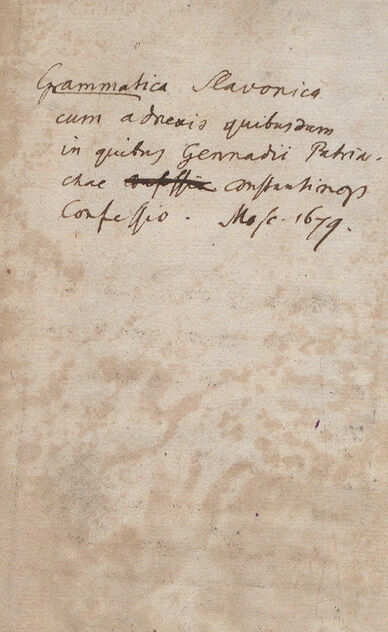 Grammatica Slavonica
cum adnexis quibusdam
in quibus Gennadii Patriar-
chae confessio constantinop
Confessio. Mosc. 1679.